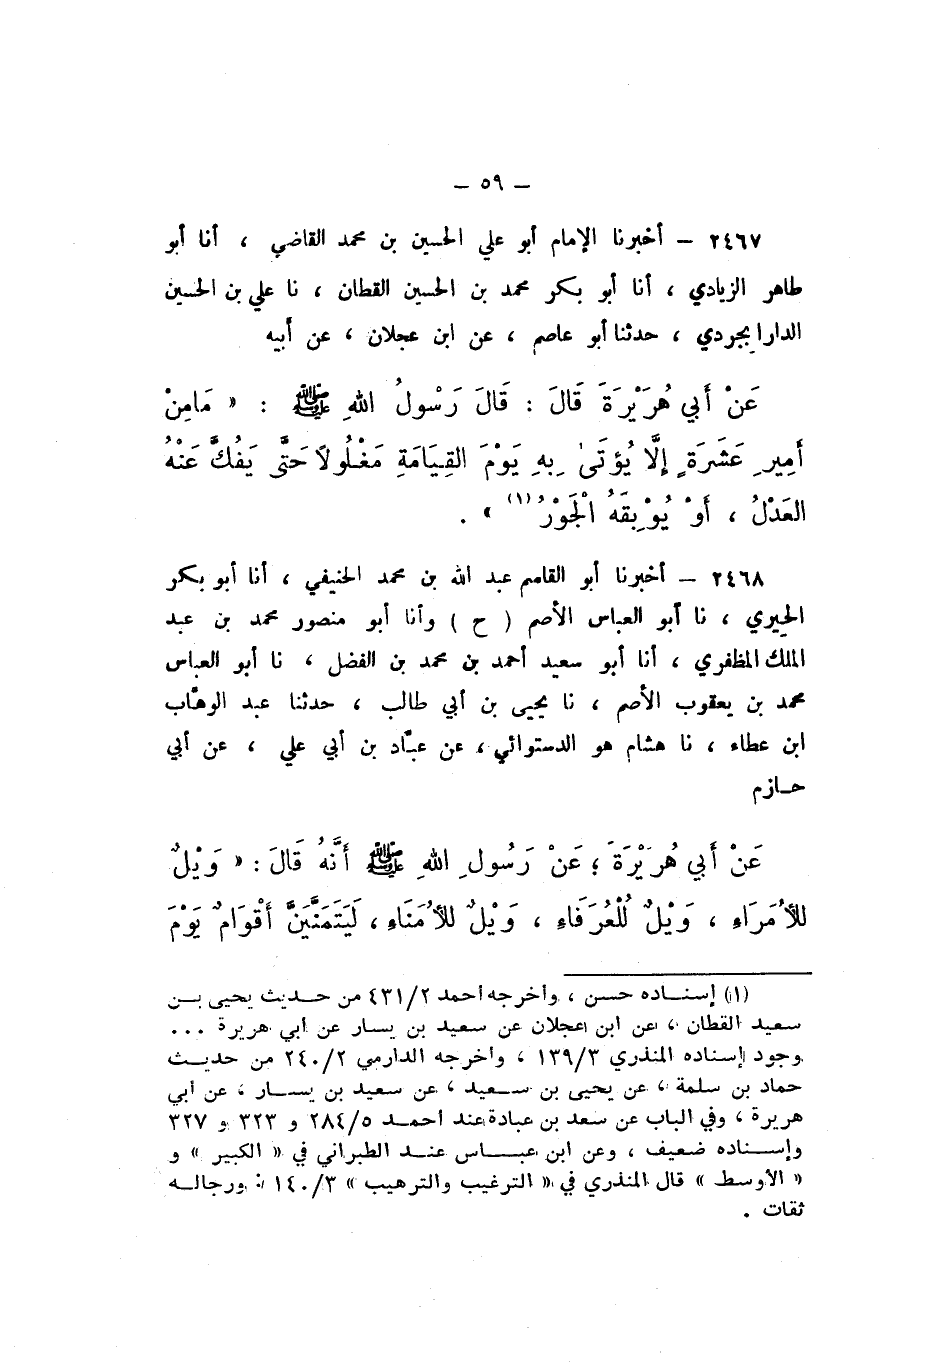 — ٥٩ —
٢٤٦٧ — أخبرنا الإمام أبو علي الحسين بن محمد القاضي ، أنا أبو
طاهر الزيادي ، أنا أبو بكر محمد بن الحسين القطان ، نا علي بن الحسين
الدارابجردي ، حدثنا أبو عاصم ، عن ابن عجلان ، عن أبيه
عَنْ أَبي هُرَيْرَةَ قَالَ : قَالَ رَسْولُ اللهِ ﷺ : « مَامِنْ
أَمِيرِ عَشَرَةٍ إِلَّا يُؤتَىٰ بِهِ يَوْمَ القِيَامَةِ مَغْلُولاً حَتَّى يَفُكَّ عَنْهُ
العَدْلُ ، أَوْ يُوْبِقَهُ الْجَوْرُ (١) » .
٢٤٦٨ — أخبرنا أبو القاسم عبد الله بن محمد الحنيفي ، أنا أبو بكر
الحِيري ، نا أبو العباس الأصم ( ح ) وأنا أبو منصور محمد بن عبد
الملك المظفري ، أنا أبو سعيد أحمد بن محمد بن الفضل ، نا أبو العباس
محمد بن يعقوب الأصم ، نا يحيى بن أبي طالب ، حدثنا عبد الوهَّاب
ابن عطاء ، نا هشام هو الدستوائي ، عن عبَّاد بن أبي علي ، عن أبي
حـازم
عَنْ أَبي هُرَيْرَةَ ؛ عَنْ رَسُولِ اللهِ ﷺ أَنَّهُ قَالَ : « وَيْلٌ
لِلأُمَرَاءِ ، وَيْلٌ لِلْعُرَفَاءِ ، وَيْلٌ لِلأُمَنَاءِ ، لَيَتَمَنَّيَنَّ أَقْوَامٌ يَوْمَ
(١) إسنـاده حسن ، وأخرجه أحمد ٤٣١/٢ من حـديث يحيى بـن
سعيد القطان ، عن ابن عجلان عن سعيد بن يسار عن أبي هريرة ...
وجود إسناده المنذري ١٣٩/٣ ، وأخرجه الدارمي ٢٤٠/٢ من حديـث
حماد بن سلمة ، عن يحيى بن سـعيد ، عن سعيد بن يسـار ، عن أبي
هريرة ، وفي الباب عن سعد بن عبادة عند أحمـد ٢٨٤/٥ و ٣٢٣ و ٣٢٧
وإسـناده ضعيف ، وعن ابن عبـاس عنـد الطبراني في « الكبير » و
« الأوسط » قال المنذري في « الترغيب والترهيب » ١٤٠/٣ : ورجالـه
ثقات .